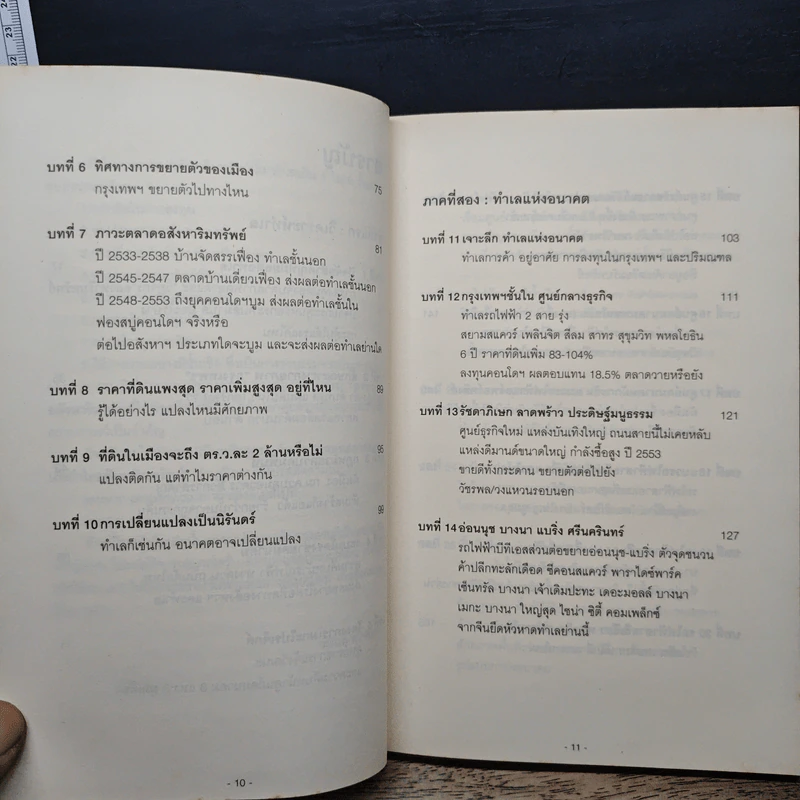 23
22
บทที่ 6 ทิศทางการขยายตัวของเมือง
กรุงเทพฯ ขยายตัวไปทางไหน 75
บทที่ 7 ภาวะตลาดอสังหาริมทรัพย์ 81
ปี 2533-2538 บ้านจัดสรรเฟื่อง ทำเลชั้นนอก
ปี 2545-2547 ตลาดบ้านเดี่ยวเฟื่อง ส่งผลต่อทำเลชั้นนอก
ปี 2548-2553 ถึงยุคคอนโดฯบูม ส่งผลต่อทำเลชั้นใน
ฟองสบู่คอนโดฯ จริงหรือ
ต่อไปอสังหาฯ ประเภทใดจะบูม และจะส่งผลต่อทำเลย่านใด
บทที่ 8 ราคาที่ดินแพงสุด ราคาเพิ่มสูงสุด อยู่ที่ไหน 89
รู้ได้อย่างไร แปลงไหนมีศักยภาพ
บทที่ 9 ที่ดินในเมืองจะถึง ตร.ว.ละ 2 ล้านหรือไม่ 95
แปลงติดกัน แต่ทำไมราคาต่างกัน
บทที่ 10 การเปลี่ยนแปลงเป็นนิรันดร์ 99
ทำเลก็เช่นกัน อนาคตอาจเปลี่ยนแปลง
- 10 -
ภาคที่สอง : ทำเลแห่งอนาคต
บทที่ 11 เจาะลึก ทำเลแห่งอนาคต 103
ทำเลการค้า อยู่อาศัย การลงทุนในกรุงเทพฯ และปริมณฑล
บทที่ 12 กรุงเทพฯชั้นใน ศูนย์กลางธุรกิจ 111
ทำเลรถไฟฟ้า 2 สาย รุ่ง
สยามสแควร์ เพลินจิต สีลม สาทร สุขุมวิท พหลโยธิน
6 ปี ราคาที่ดินเพิ่ม 83-104%
ลงทุนคอนโดฯ ผลตอบแทน 18.5% ตลาดวายหรือยัง
บทที่ 13 รัชดาภิเษก ลาดพร้าว ประดิษฐ์มนูธรรม 121
ศูนย์ธุรกิจใหม่ แหล่งบันเทิงใหญ่ ถนนสายนี้ไม่เคยหลับ
แหล่งดีมานด์ขนาดใหญ่ กำลังซื้อสูง ปี 2553
ขายดีทั้งกระดาน ขยายตัวต่อไปยัง
วัชรพล/วงแหวนรอบนอก
บทที่ 14 อ่อนนุช บางนา แบริ่ง ศรีนครินทร์ 127
รถไฟฟ้าบีทีเอสส่วนต่อขยายอ่อนนุช-แบริ่ง ตัวจุดชนวน
ค้าปลีกทะลักเดือด ซีคอนสแควร์ พาราไดซ์พาร์ค
เซ็นทรัล บางนา เจ้าเดิมปะทะ เดอะมอลล์ บางนา
เมกะ บางนา ใหญ่สุด ไชน่า ซิตี้ คอมเพล็กซ์
จากจีนยึดหัวหาดทำเลย่านนี้
- 11 -